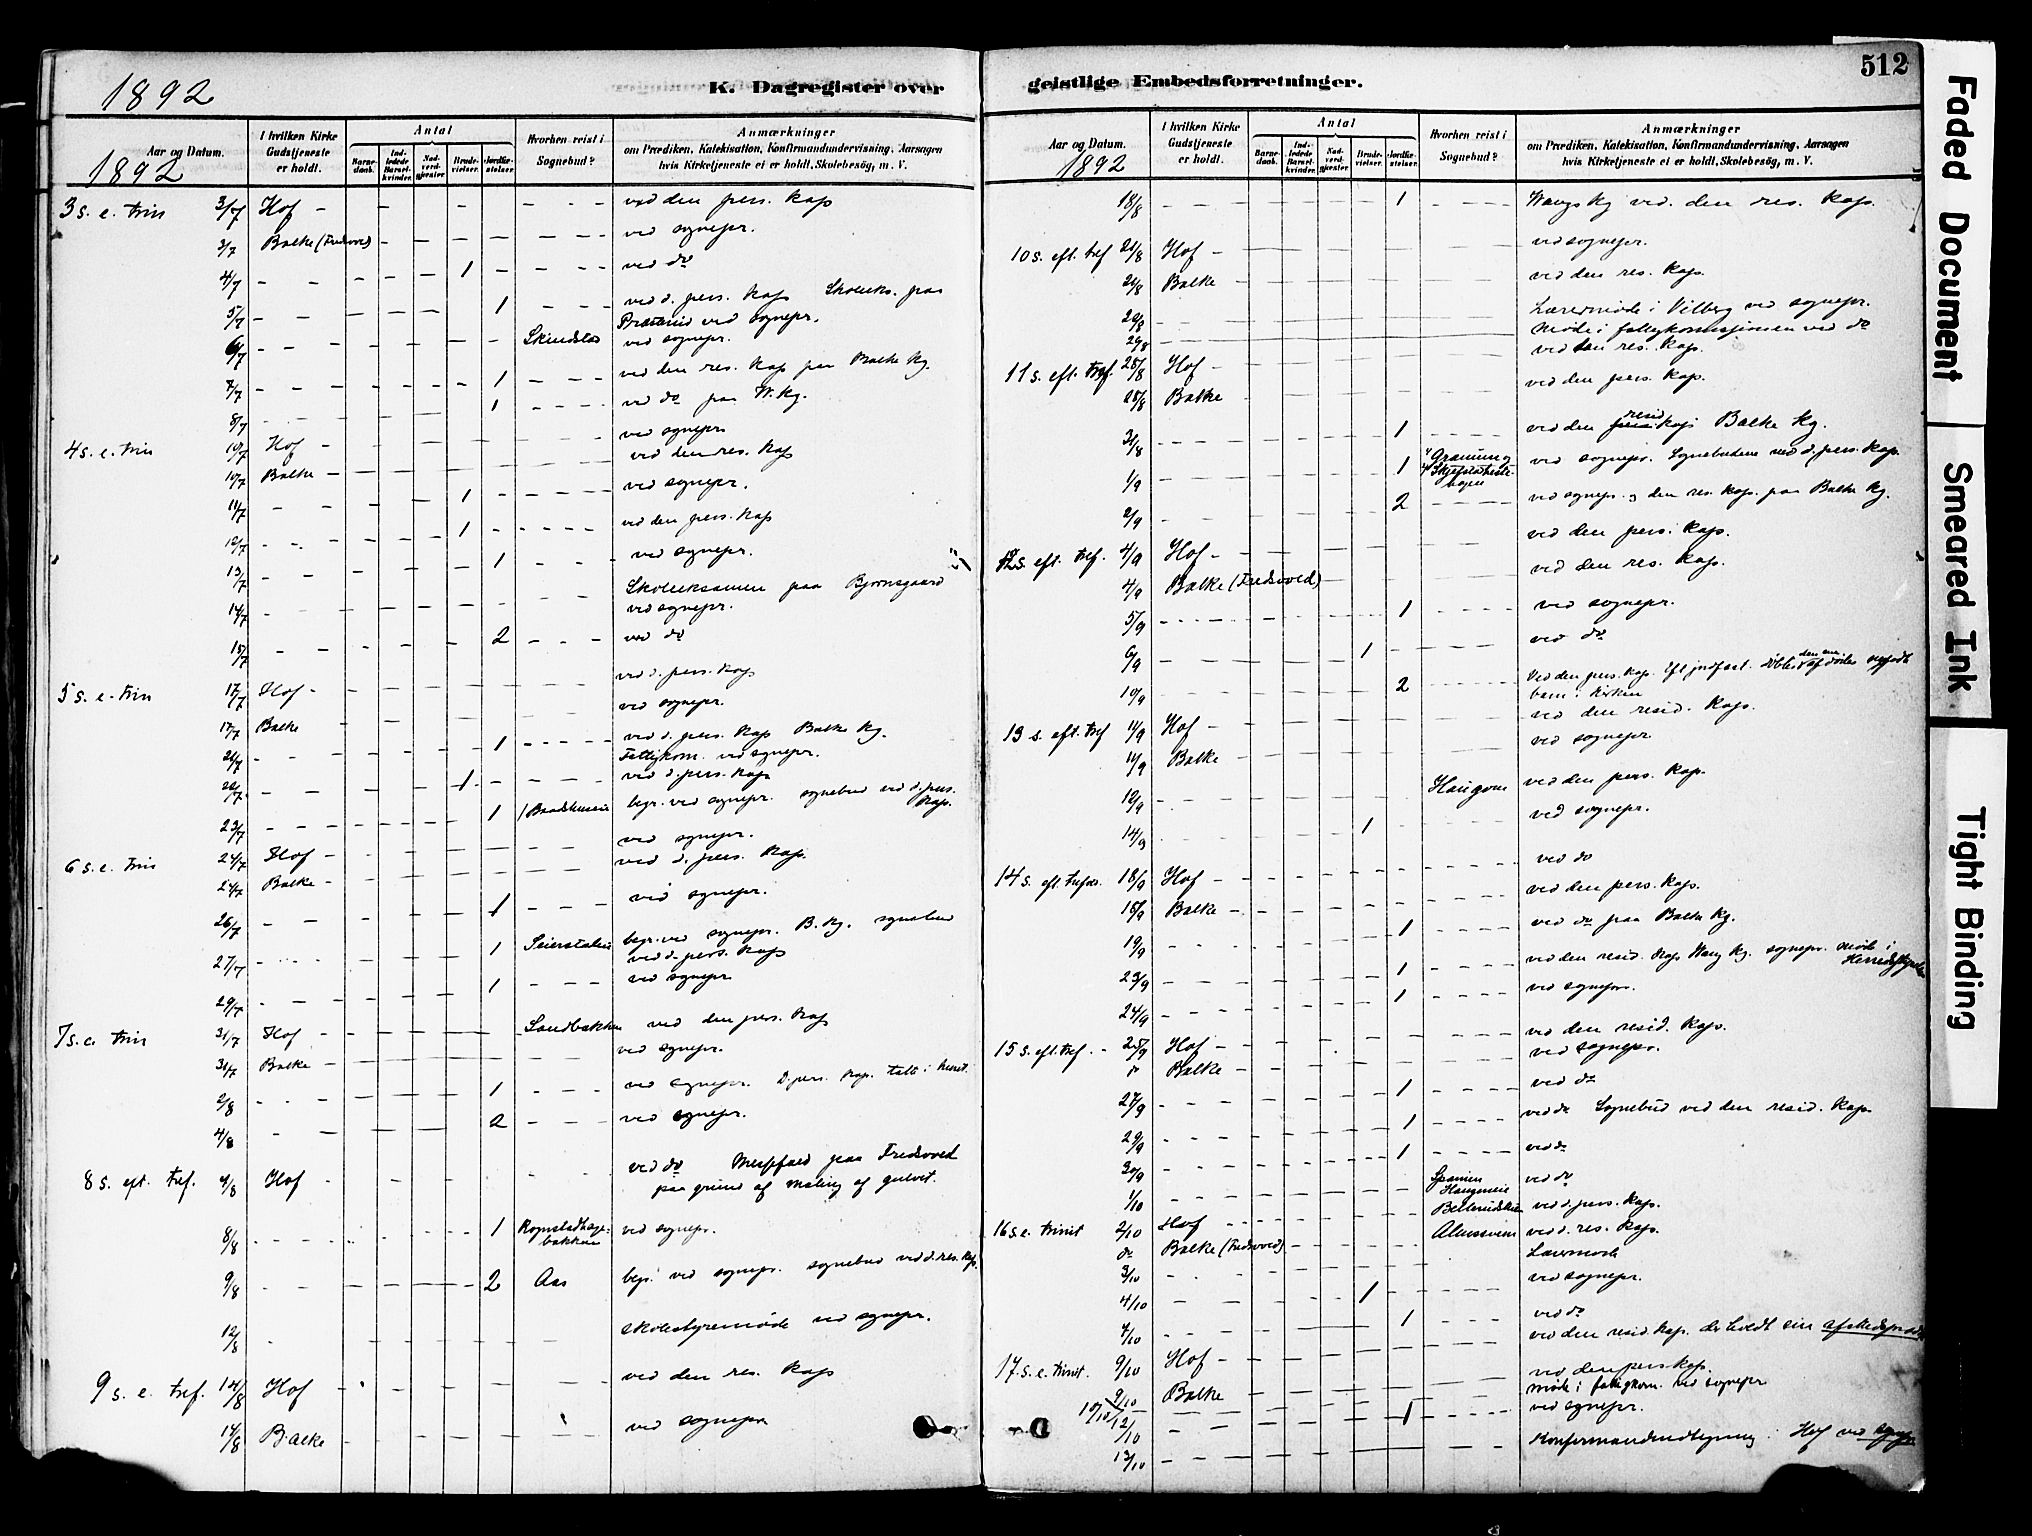 1892
K. Dagregister over
Aar og Datum.
1892
I hvilken Kirke Gudstjeneste er holdt.
Antal
Barne-daab.
Ind-ledede Barsel-kvinder.
Nad-verd-gjester.
Brude-vielser.
Jordfæ-stelser.
Hvorhen reist i Sognebud?
Anmærkninger
om Prædiken, Katekisation, Konfirmandundervisning, Aarsagen
hvis Kirketjeneste ei er holdt, Skolebesög, m. V.
3 s. e. trin 3/7 Hof ved den pers. Kap
3/7 Balke (Fredsvoed) ved sognepr.
4/7 1 ved do
5/7 1 ved d. pers. Kap
ved sognepr.
6/7 ved sognepr.
7/7 1 ved den res. Kap paa Balke Kg.
8/7 1 ved do paa W. Kg.
4 s. e. trin 10/7 Hof ved sognepr
10/7 Balke ved den res. Kap
11/7 1 ved sognepr.
12/7 1 ved den pers. Kap
13/7 1 ved sognepr.
14/7 Skoleeksamen paa Bjørnsgaard
ved sognepr.
15/7 2 ved do
5 s. e. trin 17/7 Hof ved d. pers. Kap
17/7 Balke ved sognepr.
21/7 1 ved d. pers. Kap Balke Kg.
Fattigkom. ved sognepr.
22/7 1 ved d. pers. Kap
23/7 1 begr. ved sognepr. sognebud ved d. pers. Kap.
6 s. e. trin 24/7 Hof ved sognepr.
24/7 Balke ved d. pers. Kap.
26/7 1 ved sognepr.
27/7 1 begr. ved sognepr. B. Kg. sognebud
ved d. pers. Kap
29/7 1 ved sognepr
7 s. e. trin 31/7 Hof Sandbakken ved den pers. Kap
31/7 Balke ved sognepr.
2/8 1 ved sognepr. D. pers. Kap.
4/8 2 ved sognepr.
8 s. eft. tref. Hof ved do Messefald paa Fredsvoed
paa grund af maling af gulvet.
8/8 1 ved sognepr.
9/8 2 Aas begr. ved sognepr. sognebud ved d. res. Kap.
12/8 Skolestyremøde ved sognepr.
9 s. e. tref. 14/8 Hof ved den res. Kap
14/8 Balke ved sognepr
geistlige Embedsforretninger.
512
Aar og Datum.
1892
I hvilken Kirke Gudstjeneste er holdt.
Antal
Barne-daab.
Ind-ledede Barsel-kvinder.
Nad-verd-gjester.
Brude-vielser.
Jordfæ-stelser.
Hvorhen reist i Sognebud?
Anmærkninger
om Prædiken, Katekisation, Konfirmandundervisning, Aarsagen
hvis Kirketjeneste ei er holdt, Skolebesög, m. V.
18/8 1 Wangs Kg ved. den res. Kap.
10 s. eft. tref 21/8 Hof ved sognepr.
21/8 Balke ved den res. Kap.
Lærermøde i Vilberg ved sognepr.
Møde i fattigkommissionen ved do
11 s. eft. tref. 28/8 Hof ved den res. Kap.
28/8 Balke ved den pers. Kap.
31/8 1 ved den resid Kap. Balke Kg.
1/9 1 ved sognepr. Sognebudene ved d. pers. Kap.
2/9 2 ved sognepr. og den res. Kap. paa Balke Kg.
12 s. eft. tref. 4/9 Hof ved den pers. Kap.
4/9 Balke (Fredsvoed) ved den res. Kap.
5/9 1 ved sognepr.
6/9 1 ved do
10/9 2 Ved den pers. Kap.
barn i Kirken
13 s. eft. tref 11/9 Hof ved den resid. Kap.
11/9 Balke ved sognepr
12/9 ved den pers. Kap.
14/9 1 ved sognepr.
14 s. eft. 18/9 Hof ved do
18/9 Balke ved den pers. Kap.
19/9 1 ved do paa Balke Kg.
23/9 1 ved den resid. Kap Wang Kg. sognepr. møde i
24/9 1 ved sognepr.
15 s. eft. tref. 25/9 Hof ved den resid. Kap.
Balke ved sognepr.
27/9 1 ved do
29/9 1 ved do Sognebud ved den resid. Kap.
30/9 1 ved do
1/10 ved do
ved d. pers. Kap.
16 s. e. trinit 2/10 Hof ved d. res. Kap.
do Balke (Fredsvoed)
3/10 Lærermøde
4/10 1 ved sognepr.
7/10 1 ved do
17 s. e. trinit. 9/10 Hof ved den resid. Kap. der holdt sin
9/10 Balke ved den pers Kap.
10/10 møde i fattigkom. ved sognepr
12/10 1 ved sognepr.
13/10 Hof ved
Faded Document
Smeared Ink
Tight Binding